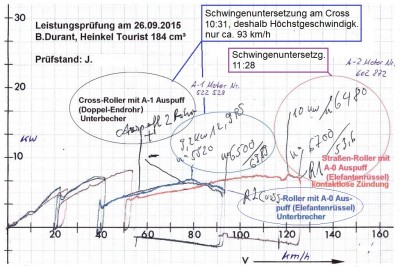 30
Leistungsprüfung am 26.09.2015
B.Durant, Heinkel Tourist 184 cm³
Prüfstand: J.
Schwingenuntersetzung am Cross
10:31, deshalb Höchstgeschwindigk.
nur ca. 93 km/h
Schwingenuntersetzg.
11:28
A-1 Motor Nr.
522 528
A-2 Motor Nr.
602 872
Cross-Roller mit A-1 Auspuff
(Doppel-Endrohr)
Unterbecher
Auspuff 2 Rohr
n=5520
n=6500
10 kW
6480
n=6700
53,6
R1
Straßen-Roller mit
A-0 Auspuff
(Elefantenrüssel)
kontaktlose Zündung
KW
20
10
R2
-Roller mit A-0 Aus-
puff (Elefantenrüssel)
Unterbrecher
0
20
40
60
80
100
120
140
160
V
km/h